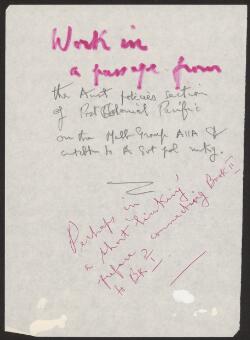 Work in
a passage from
the Aust policies section
of Post Colonial Pacific
on the Melb Group AIIA &
to A Govt pol
Perhaps in
a short 'linking'
preface ?
connecting Book II
to BK I